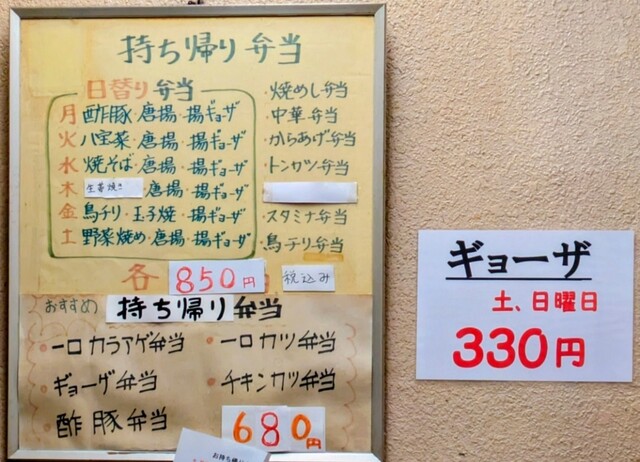 持ち帰り弁当
日替り弁当
月 酢豚・唐揚・揚ギョーザ
火 八宝菜・唐揚・揚ギョーザ
水 焼そば・唐揚・揚ギョーザ
木 生姜焼き・唐揚・揚ギョーザ
金 鳥チリ・玉子焼・揚ギョーザ
土 野菜炒め・唐揚・揚ギョーザ
・焼めし弁当
・中華弁当
・からあげ弁当
・トンカツ弁当
・スタミナ弁当
・鳥チリ弁当
各 850円 税込み
おすすめ 持ち帰り弁当
・一口カラアゲ弁当
・一口カツ弁当
・ギョーザ弁当
・チキンカツ弁当
・酢豚弁当
680円
ギョーザ
土、日曜日
330円